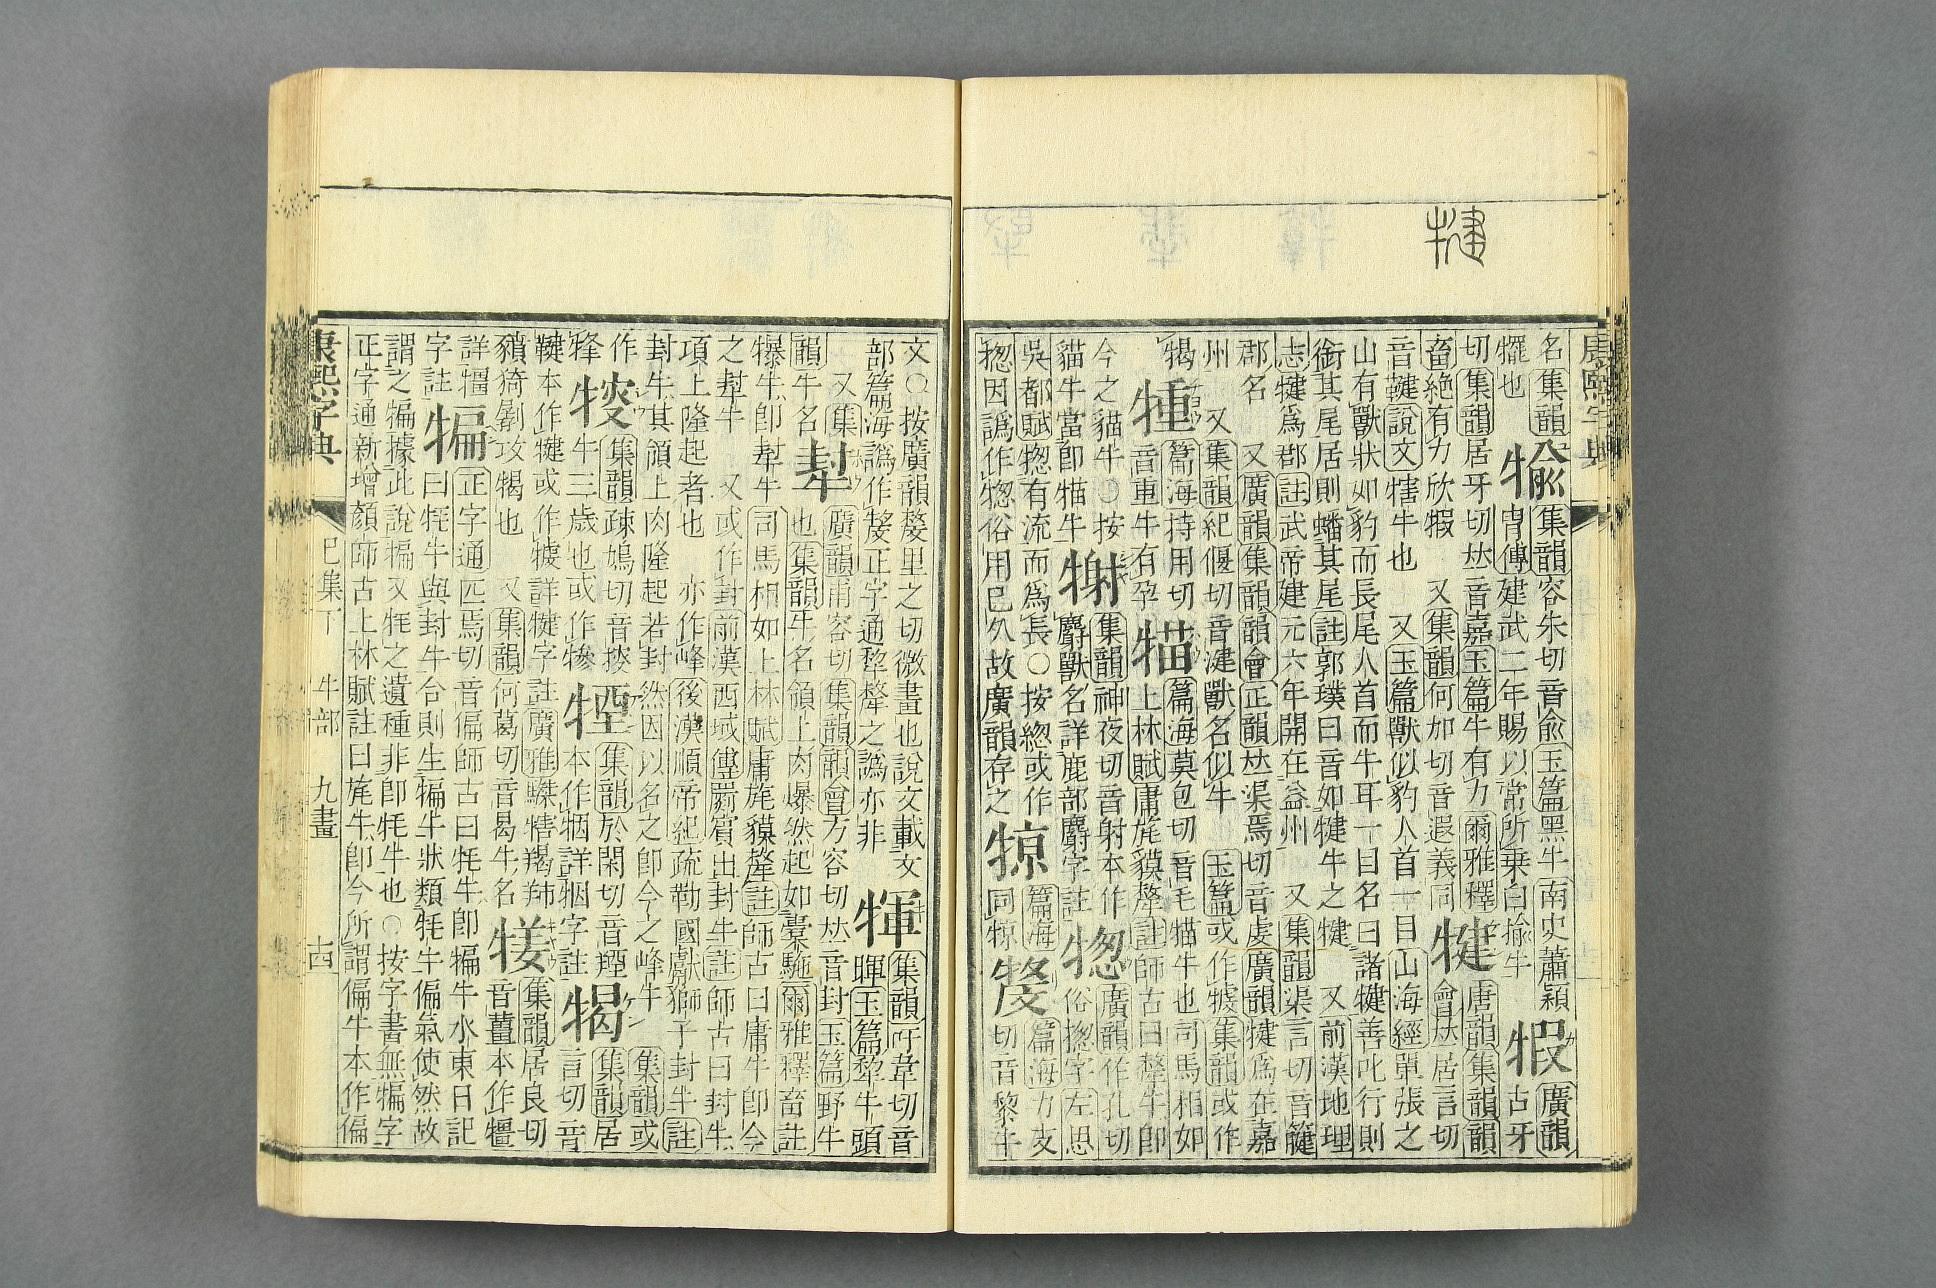 犍
名集韻
牻也
㺄集韻容朱切音兪玉篇黑牛南史蕭穎
冑傳建武二年賜以常所乗白㺄牛
犌廣韻古牙
切集韻居牙切𠀤音嘉玉篇牛有力爾雅釋
畜絶有力欣犌 又集韻何加切音遐義同
犍唐韻集韻韻會𠀤居言切
音鞬說文犗牛也 又玉篇獸似豹人首一目山海經單張之
山有獸狀如豹而長尾人首而牛耳一目名曰諸犍善吒行則
銜其尾居則蟠其尾註郭璞曰音如犍牛之犍 又前漢地理
志犍爲郡註武帝建元六年開在益州 又集韻渠言切音籬
郡名 又廣韻集韻韻會正韻𠀤渠焉切音虔廣韻犍爲在嘉
州 又集韻紀偃切音湕獸名似牛 玉篇或作㹔集韻或作
犑篇海持用切
音重牛有孕
猫篇海莫包切音毛猫牛也司馬相如
上林賦㺎旄貘犛註師古曰犛牛卽
今之貓牛○按
貓牛當卽猫牛
集韻神夜切音射本作
麝獸名詳鹿部麝字註
廣韻作孔切
俗揔字左思
吳都賦惣有流而爲長○按總或作
揔因譌作惣俗用已久故廣韻存之
篇海
同犉
篇海力支
切音黎牛
文○按廣韻犛里之切微畫也說文載文
部篇海譌作犛正字通犂犛之譌亦非
㹆集韻吁韋切音
暉玉篇犂牛頭
又集
韻牛名
廣韻甫容切集韻韻會方容切𠀤音封玉篇野牛
也集韻牛名領上肉㬥然起如橐駞爾雅釋畜註
犦牛卽犎牛 司馬相如上林賦㺎旄貘犛註師古曰㺎牛卽今
之犎牛 又或作封前漢西域傳罽賓出封牛註師古曰封牛
項上隆起者也 亦作峰後漢順帝紀疏勒國獻獅子封牛註
封牛其領上肉隆起若封然因以名之卽今之峰牛 集韻或
作犎
牛三歲也或作犙
集韻於閑切音煙
本作㹂詳㹂字註
犗集韻居言切音
鞬本作犍或作㹔詳犍字註廣雅騬犗羯㸺
獖猗㓺攻犗也 又集韻何葛切音曷牛名
集韻居良切
音薑本作犟
詳犟
字註
犏正字通匹焉切音偏師古曰牦牛卽犏牛水東日記
曰牦牛與封牛合則生犏牛狀類牦牛偏氣使然故
謂之犏據此說犏又牦之遺種非卽牦牛也○按字書無犏字
正字通新增顏師古上林賦註曰旄牛卽今所謂偏牛本作偏
康熙字典 巳集下 牛部 九畫 古